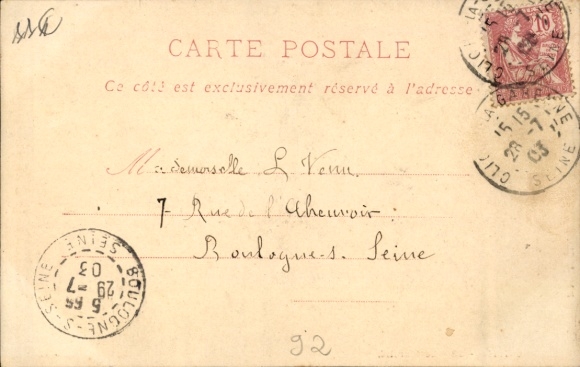 CARTE POSTALE
Ce côté est exclusivement réservé à l'adresse
Mademoiselle L. Venn
7 Rue de l'Abreuvoir
Boulogne-s. Seine
10
15 15
28 -7
03
CLICHY-LA-GARENNE
SEINE
BOULOGNE-S-SEINE
SEINE
5 55
29 -7
03
92